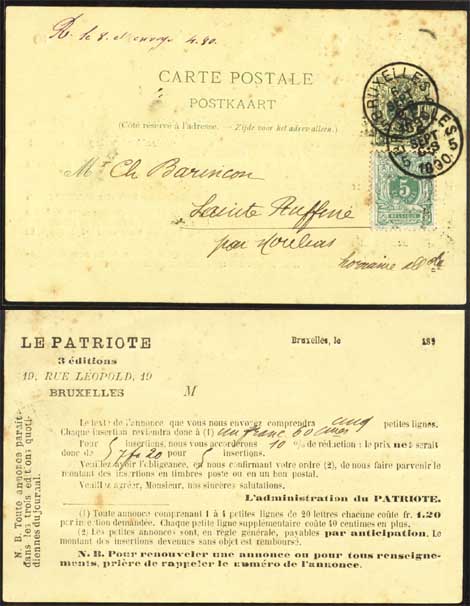 R. le 8. 4.90.
CARTE POSTALE
POSTKAART
(Côté réservé à l'adresse. — Zijde voor het adres alleen.)
BRUXELLES
BRUXELLES 5
SEPT
1890
5
Mr Ch Barincon
Sainte Ruffine
par Moulins
Lorraine
LE PATRIOTE
3 éditions
19, RUE LÉOPOLD, 19
BRUXELLES
Bruxelles, le 189
M
N. B. Toute annonce paraît
dans les trois éditions quoti-
diennes du journal.
Le texte de l'annonce que vous nous envoyez comprendra cinq petites lignes.
Chaque insertion reviendra donc à (1) un franc 60 cmes
Pour 5 insertions, nous vous accorderons 10 % de réduction : le prix net serait
donc de 7 fr 20 pour 5 insertions.
Veuillez avoir l'obligeance, en nous confirmant votre ordre (2), de nous faire parvenir le
montant des insertions en timbres poste ou en un bon postal.
Veuillez agréer, Monsieur, nos sincères salutations.
L'administration du PATRIOTE.
(1) Toute annonce comprenant 1 à 4 petites lignes de 20 lettres chacune coûte fr. 1.20
par insertion demandée. Chaque petite ligne supplémentaire coûte 40 centimes en plus.
(2) Les petites annonces sont, en règle générale, payables par anticipation. Le
montant des insertions devenues sans objet est remboursé.
N. B. Pour renouveler une annonce ou pour tous renseigne-
ments, prière de rappeler le numéro de l'annonce.